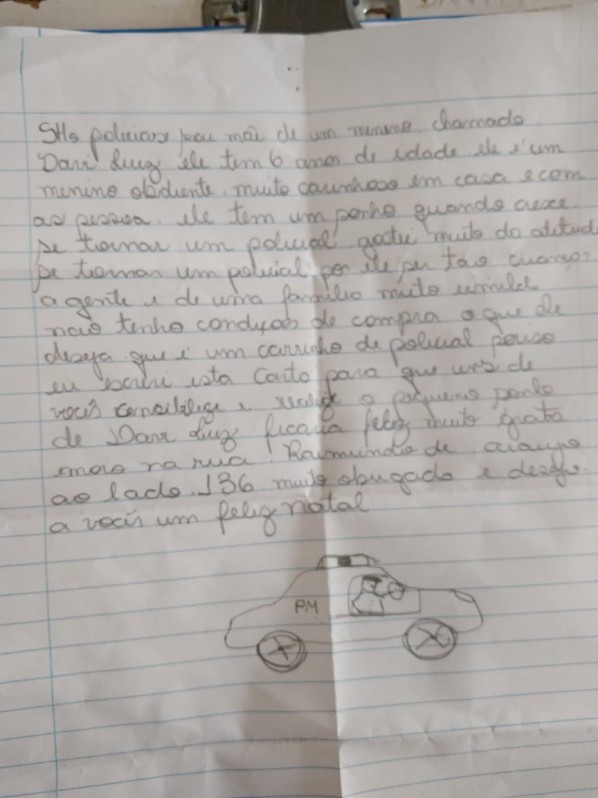 SHs policiais sou mãe de um menino chamado
Davi Luiz ele tem 6 anos de idade ele é um
menino obidiente muito carinhoso em casa e com
as pessoa. ele tem um sonho quando cresce
se tornar um policial gostei muito da atitud
se tornar um policial por ele ser tão criança
a gente e de uma familia muito umilde
não tenho condições de compra o que ele
deseja que é um carrinho de policial
eu escrevi esta Carta para que uns de
vocês e realize o pequeno sonho
de Davi Luiz ficaria feliz muito grata
moro na rua Raimundo de
ao lado 136 muito obrigado e desejo
a vocês um feliz natal
PM